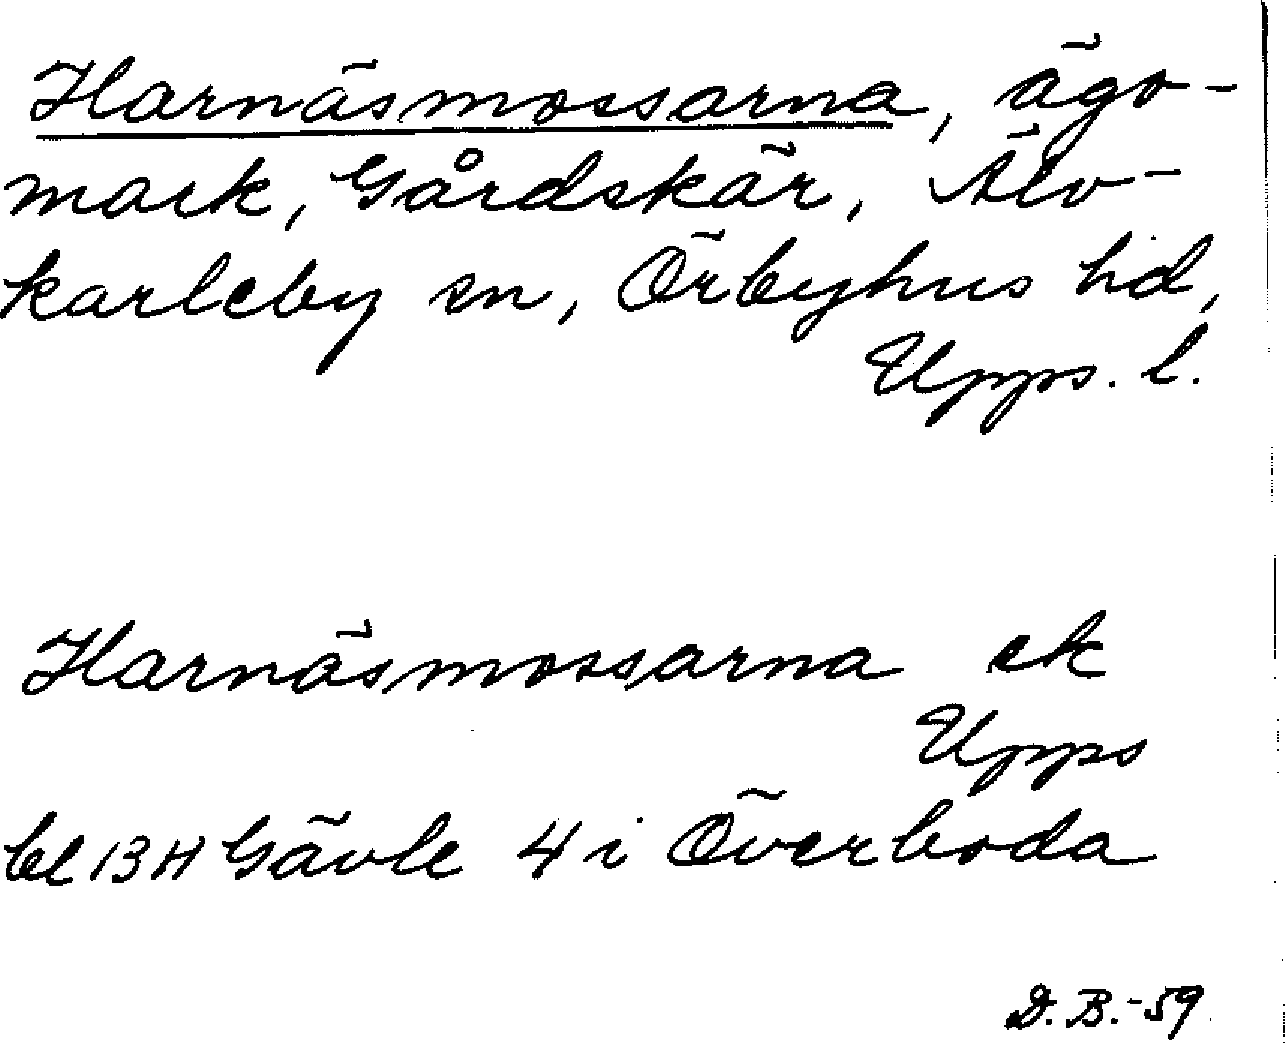 Harnäsmossarna, ägo-
mark, Gårdskär, Älv-
karleby sn, Örbyhus hd,
Upps. l.
Harnäsmossarna ek
Upps
bl 13H Gävle 4 i Överboda
D. B. -59